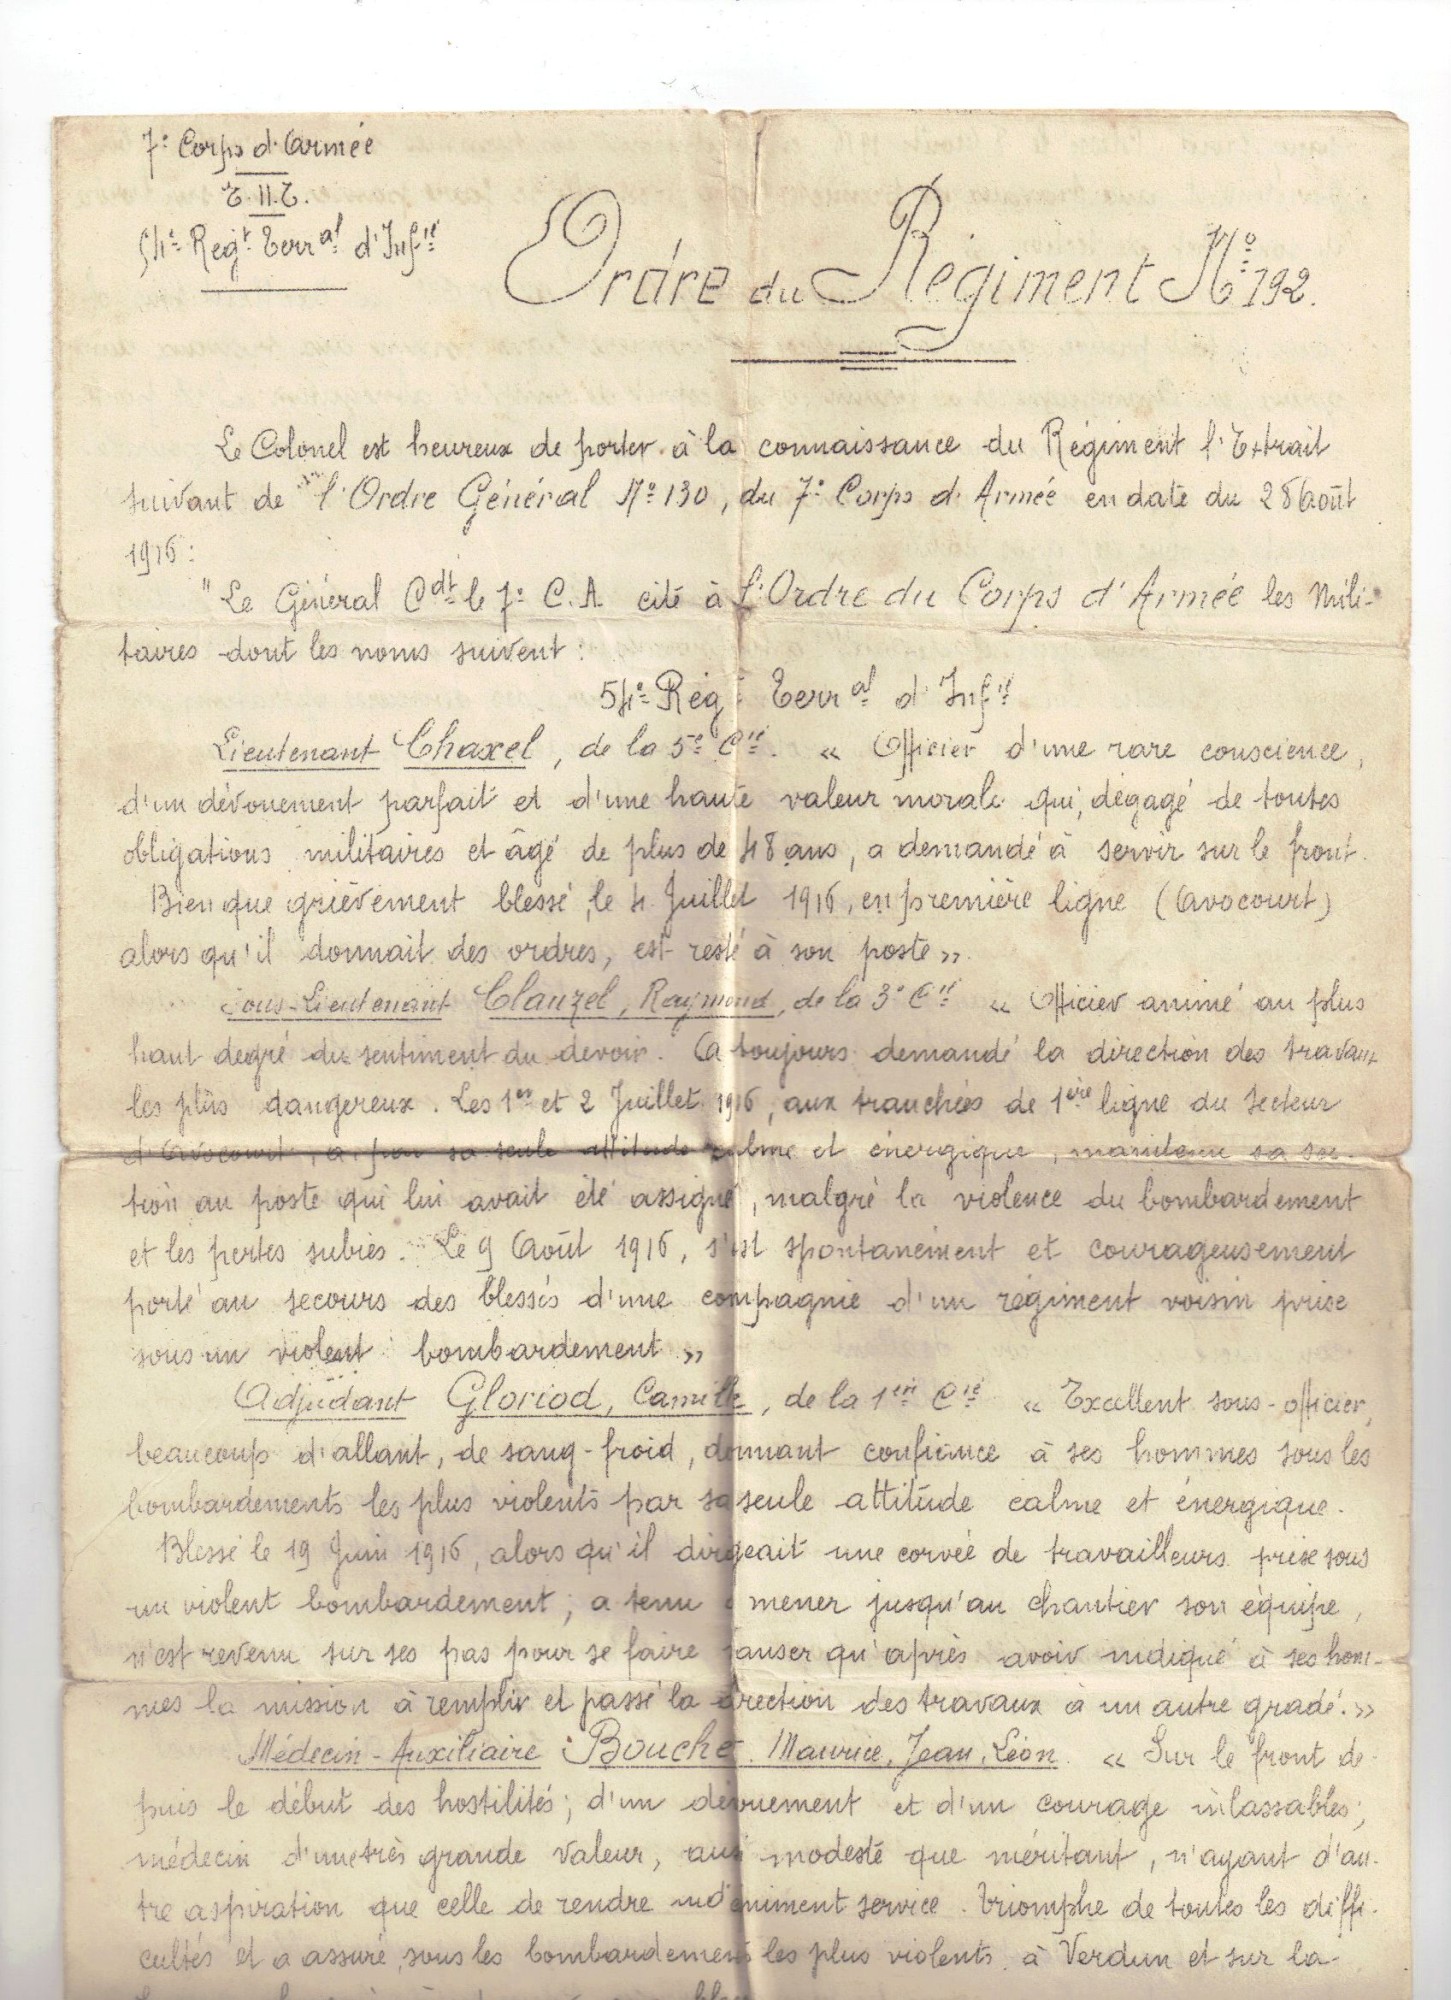 7e Corps d'Armée
E.II.E.
54e Regt Terral d'Infie
Ordre du Régiment No 192.
Le Colonel est heureux de porter à la connaissance du Régiment l'Extrait
suivant de l'Ordre Général No 130, du 7e Corps d'Armée en date du 28 Août
1916 :
"Le Général Cdt le 7e C.A. cite à l'Ordre du Corps d'Armée les Mili-
taires dont les noms suivent :
54e Régt Terral d'Infie
Lieutenant Chaxel, de la 5e Cie. « Officier d'une rare conscience,
d'un dévouement parfait et d'une haute valeur morale qui, dégagé de toutes
obligations militaires et âgé de plus de 48 ans, a demandé à servir sur le front.
Bien que grièvement blessé, le 4 Juillet 1916, en première ligne (Avocourt)
alors qu'il donnait des ordres, est resté à son poste ».
Sous-Lieutenant Clauzel, Raymond, de la 3e Cie « Officier animé au plus
haut degré du sentiment du devoir. A toujours demandé la direction des travaux
les plus dangereux. Les 1er et 2 Juillet 1916, aux tranchées de 1ère ligne du secteur
d'Avocourt, a, par sa seule attitude calme et énergique, maintenu sa sec-
tion au poste qui lui avait été assigné, malgré la violence du bombardement
et les pertes subies. Le 9 Août 1916, s'est spontanément et courageusement
porté au secours des blessés d'une compagnie d'un régiment voisin prise
sous un violent bombardement »
Adjudant Gloriod, Camille, de la 1ère Cie « Excellent sous-officier,
beaucoup d'allant, de sang-froid, donnant confiance à ses hommes sous les
bombardements les plus violents par sa seule attitude calme et énergique.
Blessé le 19 Juin 1916, alors qu'il dirigeait une corvée de travailleurs prise sous
un violent bombardement ; a tenu à mener jusqu'au chantier son équipe,
n'est revenu sur ses pas pour se faire panser qu'après avoir indiqué à ses hom-
mes la mission à remplir et passé la direction des travaux à un autre gradé. »
Médecin-Auxiliaire Bouche, Maurice, Jean, Léon. « Sur le front de-
puis le début des hostilités ; d'un dévouement et d'un courage inlassables ;
médecin d'une très grande valeur, aussi modeste que méritant, n'ayant d'au-
tre aspiration que celle de rendre service. Triomphe de toutes les diffi-
cultés et a assuré, sous les bombardements les plus violents à Verdun et sur la